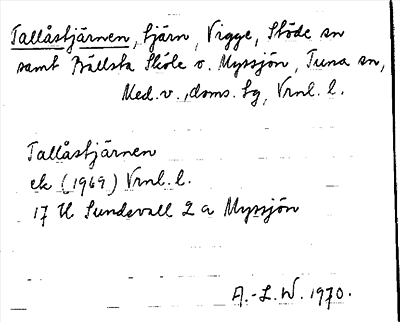 Tallåstjärnen, tjärn, Vigge, Stöde sn
samt Bällsta Sköle o. Myssjön, Tuna sn,
Med. v., doms. tg, Vrnl. l.
Tallåstjärnen
ek (1969) Vrnl. l.
17 H Sundsvall 2 a Myssjön
A.-L.W. 1970.